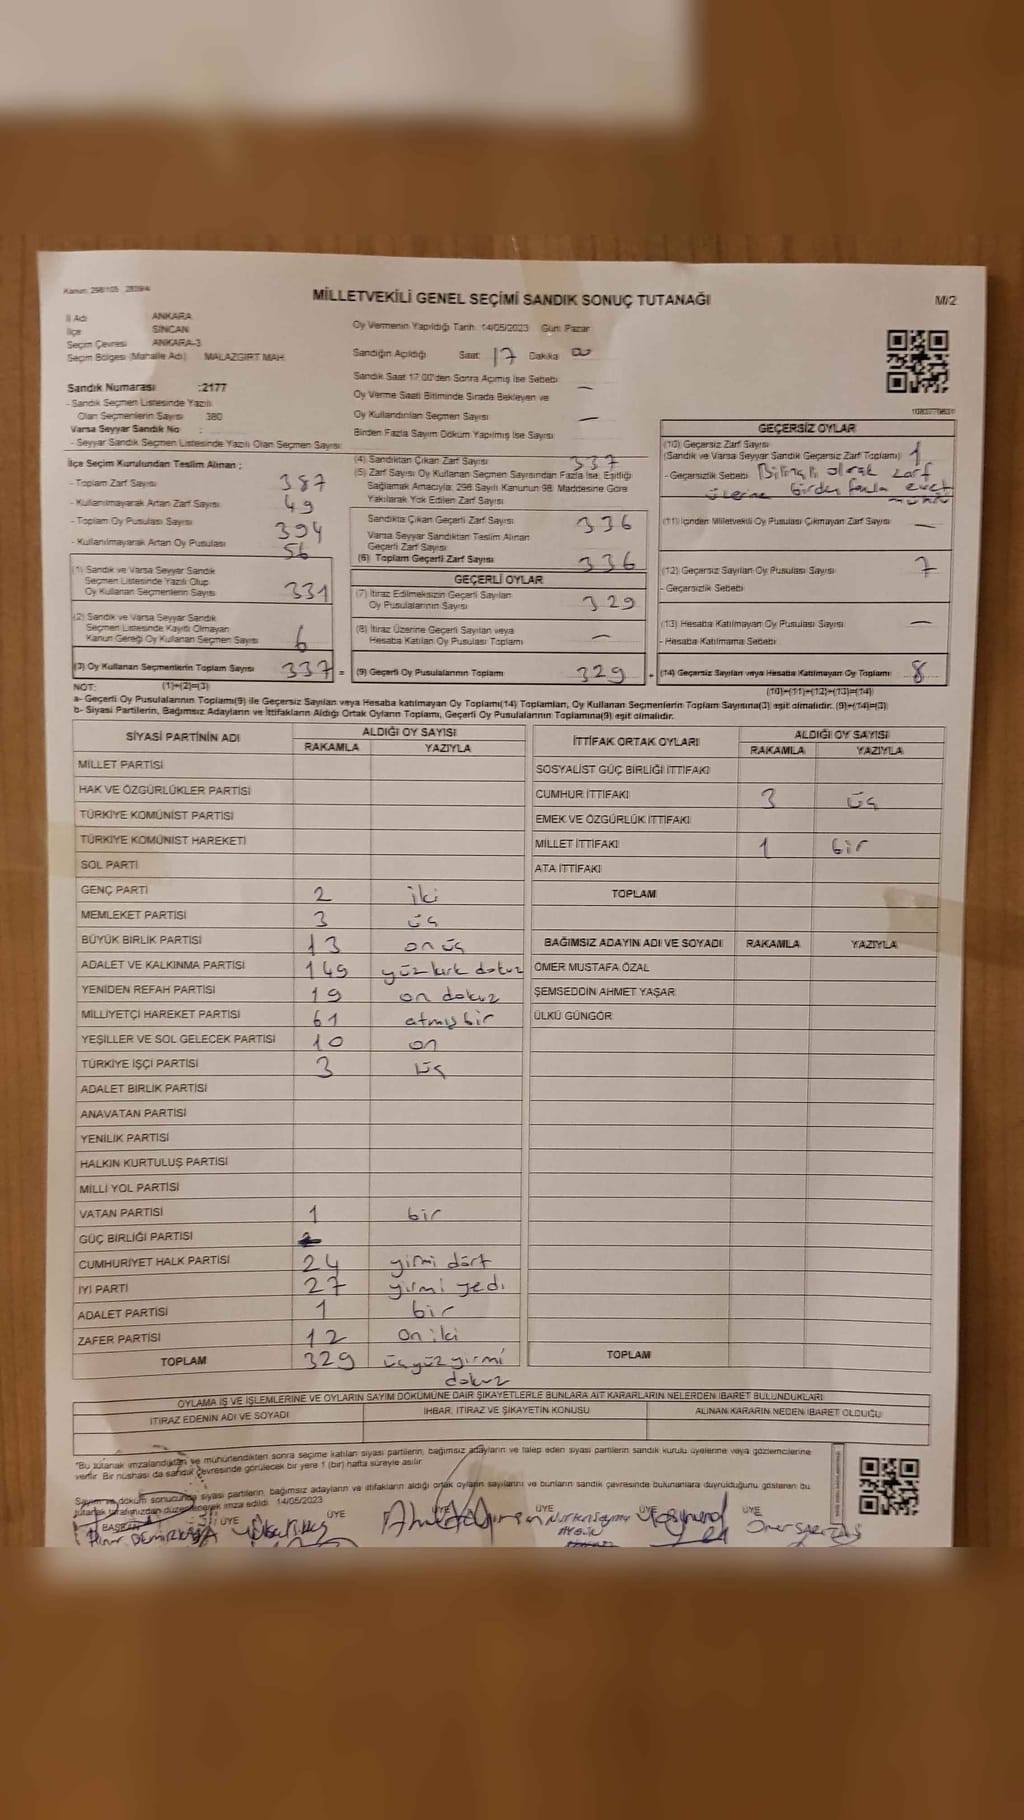 Kanun: 298/105
MİLLETVEKİLİ GENEL SEÇİMİ SANDIK SONUÇ TUTANAĞI
M/2
İl Adı ANKARA
İlçe SİNCAN
Seçim Çevresi ANKARA-3
Seçim Bölgesi (Mahalle Adı) MALAZGİRT MAH.
Oy Vermenin Yapıldığı Tarih: 14/05/2023 Gün: Pazar
Sandığın Açıldığı Saat: 17 Dakika
Sandık Saat 17.00'den Sonra Açılmış İse Sebebi —
Oy Verme Saati Bitiminde Sırada Bekleyen ve
Oy Kullandırılan Seçmen Sayısı —
Birden Fazla Sayım Döküm Yapılmış İse Sayısı
Sandık Numarası :2177
- Sandık Seçmen Listesinde Yazılı
Olan Seçmenlerin Sayısı : 380
Varsa Seyyar Sandık No :
- Seyyar Sandık Seçmen Listesinde Yazılı Olan Seçmen Sayısı:
İlçe Seçim Kurulundan Teslim Alınan :
- Toplam Zarf Sayısı 387
- Kullanılmayarak Artan Zarf Sayısı 49
- Toplam Oy Pusulası Sayısı 394
- Kullanılmayarak Artan Oy Pusulası 56
(1) Sandık ve Varsa Seyyar Sandık
Seçmen Listesinde Yazılı Olup
Oy Kullanan Seçmenlerin Sayısı 331
(2) Sandık ve Varsa Seyyar Sandık
Seçmen Listesinde Kayıtlı Olmayan
Kanun Gereği Oy Kullanan Seçmen Sayısı 6
(3) Oy Kullanan Seçmenlerin Toplam Sayısı 337 =
(4) Sandıktan Çıkan Zarf Sayısı 337
(5) Zarf Sayısı Oy Kullanan Seçmen Sayısından Fazla İse; Eşitliği
Sağlamak Amacıyla; 298 Sayılı Kanunun 98. Maddesine Göre
Yakılarak Yok Edilen Zarf Sayısı
Sandıkta Çıkan Geçerli Zarf Sayısı 336
Varsa Seyyar Sandıktan Teslim Alınan
Geçerli Zarf Sayısı
(6) Toplam Geçerli Zarf Sayısı 336
GEÇERLİ OYLAR
(7) İtiraz Edilmeksizin Geçerli Sayılan
Oy Pusulalarının Sayısı 329
(8) İtiraz Üzerine Geçerli Sayılan veya
Hesaba Katılan Oy Pusulası Toplamı —
(9) Geçerli Oy Pusulalarının Toplamı 329 +
GEÇERSİZ OYLAR
(10) Geçersiz Zarf Sayısı 1
(Sandık ve Varsa Seyyar Sandık Geçersiz Zarf Toplamı)
- Geçersizlik Sebebi Bilinçli olarak zarf
üzerine birden fazla evet
mührü
(11) İçinden Milletvekili Oy Pusulası Çıkmayan Zarf Sayısı —
(12) Geçersiz Sayılan Oy Pusulası Sayısı 7
- Geçersizlik Sebebi
(13) Hesaba Katılmayan Oy Pusulası Sayısı —
- Hesaba Katılmama Sebebi
(14) Geçersiz Sayılan veya Hesaba Katılmayan Oy Toplamı 8
NOT: (1)+(2)=(3)
(10)+(11)+(12)+(13)=(14)
a- Geçerli Oy Pusulalarının Toplamı(9) ile Geçersiz Sayılan veya Hesaba katılmayan Oy Toplamı(14) Toplamları, Oy Kullanan Seçmenlerin Toplam Sayısına(3) eşit olmalıdır. (9)+(14)=(3)
b- Siyasi Partilerin, Bağımsız Adayların ve İttifakların Aldığı Ortak Oyların Toplamı, Geçerli Oy Pusulalarının Toplamına(9) eşit olmalıdır.
SİYASİ PARTİNİN ADI ALDIĞI OY SAYISI
RAKAMLA YAZIYLA
MİLLET PARTİSİ
HAK VE ÖZGÜRLÜKLER PARTİSİ
TÜRKİYE KOMÜNİST PARTİSİ
TÜRKİYE KOMÜNİST HAREKETİ
SOL PARTİ
GENÇ PARTİ 2 iki
MEMLEKET PARTİSİ 3 üç
BÜYÜK BİRLİK PARTİSİ 13 on üç
ADALET VE KALKINMA PARTİSİ 149 yüz kırk dokuz
YENİDEN REFAH PARTİSİ 19 on dokuz
MİLLİYETÇİ HAREKET PARTİSİ 61 atmış bir
YEŞİLLER VE SOL GELECEK PARTİSİ 10 on
TÜRKİYE İŞÇİ PARTİSİ 3 üç
ADALET BİRLİK PARTİSİ
ANAVATAN PARTİSİ
YENİLİK PARTİSİ
HALKIN KURTULUŞ PARTİSİ
MİLLİ YOL PARTİSİ
VATAN PARTİSİ 1 bir
GÜÇ BİRLİĞİ PARTİSİ
CUMHURİYET HALK PARTİSİ 24 yirmi dört
İYİ PARTİ 27 yirmi yedi
ADALET PARTİSİ 1 bir
ZAFER PARTİSİ 12 on iki
TOPLAM 329 üç yüz yirmi
dokuz
İTTİFAK ORTAK OYLARI ALDIĞI OY SAYISI
RAKAMLA YAZIYLA
SOSYALİST GÜÇ BİRLİĞİ İTTİFAKI
CUMHUR İTTİFAKI 3 üç
EMEK VE ÖZGÜRLÜK İTTİFAKI
MİLLET İTTİFAKI 1 bir
ATA İTTİFAKI
TOPLAM
BAĞIMSIZ ADAYIN ADI VE SOYADI RAKAMLA YAZIYLA
ÖMER MUSTAFA ÖZAL
ŞEMSEDDİN AHMET YAŞAR
ÜLKÜ GÜNGÖR
TOPLAM
OYLAMA İŞ VE İŞLEMLERİNE VE OYLARIN SAYIM DÖKÜMÜNE DAİR ŞİKAYETLERLE BUNLARA AİT KARARLARIN NELERDEN İBARET BULUNDUKLARI
İTİRAZ EDENİN ADI VE SOYADI İHBAR, İTİRAZ VE ŞİKAYETİN KONUSU ALINAN KARARIN NEDEN İBARET OLDUĞU
"Bu tutanak imzalandıktan ve mühürlendikten sonra seçime katılan siyasi partilerin, bağımsız adayların ve talep eden siyasi partilerin sandık kurulu üyelerine veya gözlemcilerine
verilir. Bir nüshası da sandık çevresinde görülecek bir yere 1 (bir) hafta süreyle asılır.
Sayım ve döküm sonucunda siyasi partilerin, bağımsız adayların ve ittifakların aldığı ortak oyların sayılarını ve bunların sandık çevresinde bulunanlara duyrulduğunu gösteren bu
tutanak tarafımızdan düzenlenerek imza edildi. 14/05/2023
BAŞKAN ÜYE ÜYE ÜYE ÜYE ÜYE ÜYE
Pınar DEMİRKAYA